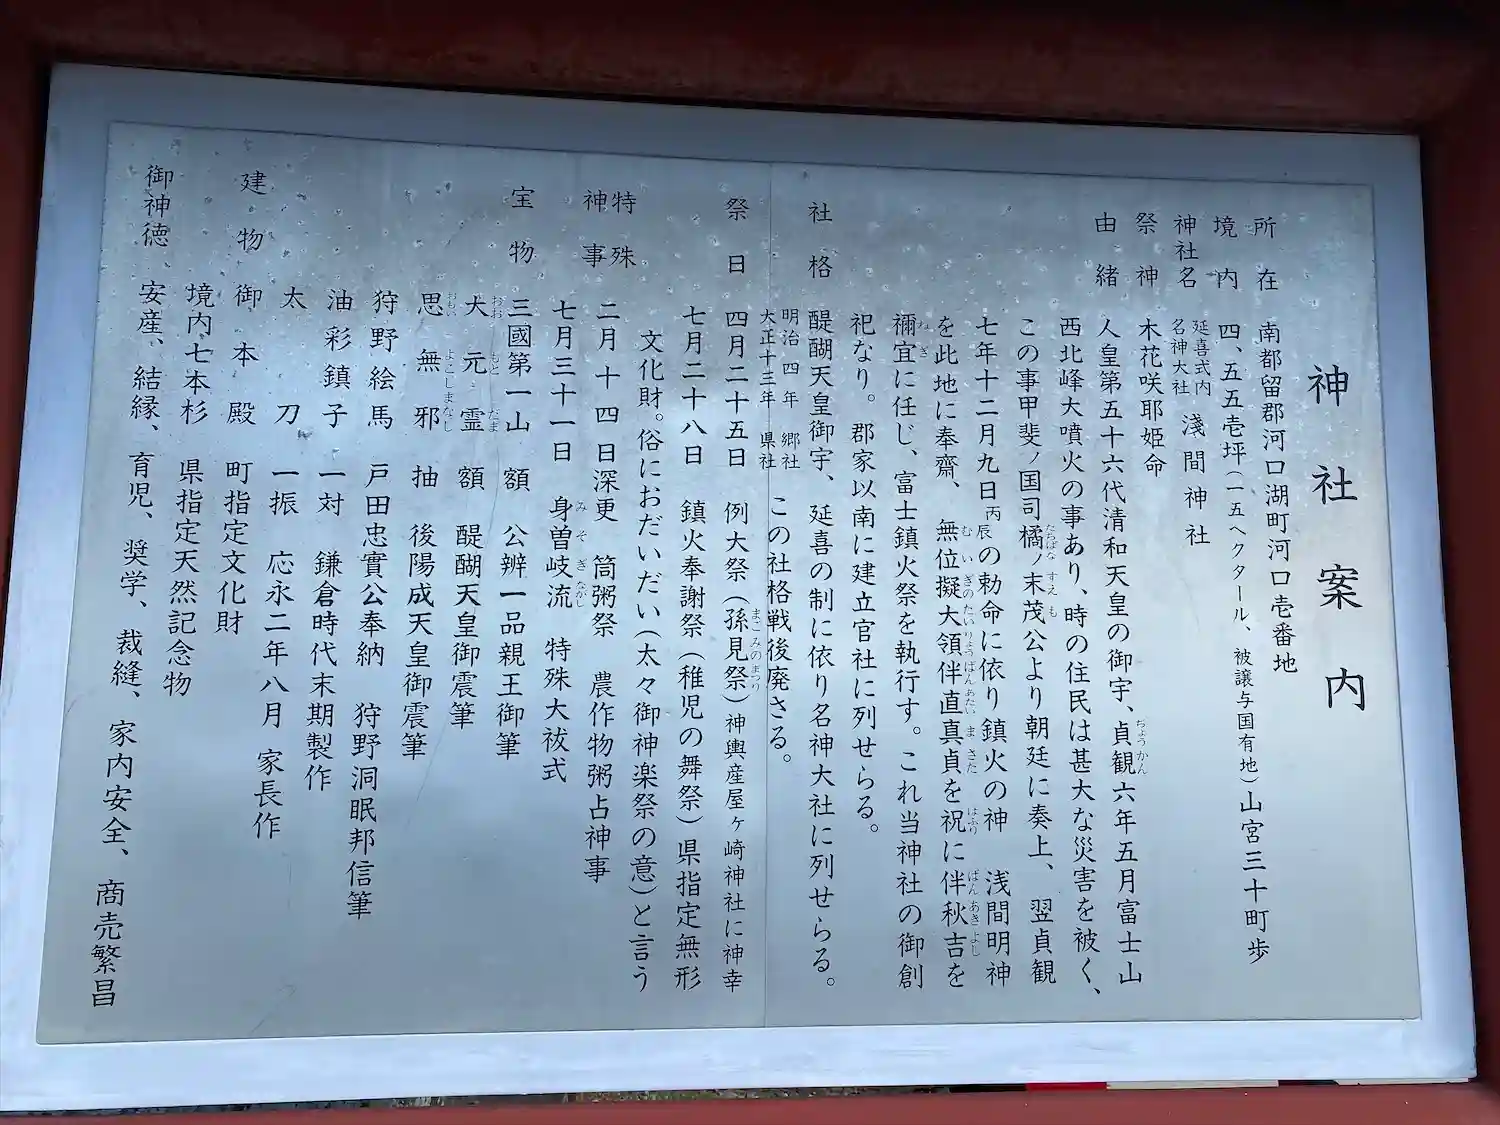 神社案内
所在 南都留郡河口湖町河口壱番地
境内 四、五五壱坪(一五ヘクタール、被譲与国有地)山宮三十町歩
神社名 延喜式内名神大社 淺間神社
祭神 木花咲耶姫命
由緒 人皇第五十六代清和天皇の御宇、貞観六年五月富士山
西北峰大噴火の事あり、時の住民は甚大な災害を被く、
この事甲斐ノ国司橘ノ末茂公より朝廷に奏上、翌貞観
七年十二月九日丙辰の勅命に依り鎮火の神 浅間明神
を此地に奉齋、無位擬大領伴直真貞を祝に伴秋吉を
禰宜に任じ、富士鎮火祭を執行す。これ当神社の御創
祀なり。郡家以南に建立官社に列せらる。
社格 醍醐天皇御宇、延喜の制に依り名神大社に列せらる。
明治四年 郷社
大正十三年 県社 この社格戦後廃さる。
祭日 四月二十五日 例大祭(孫見祭)神輿産屋ヶ崎神社に神幸
七月二十八日 鎮火奉謝祭(稚児の舞祭)県指定無形
文化財。俗におだいだい(太々御神楽祭の意)と言う
特殊神事 二月十四日深更 筒粥祭 農作物粥占神事
七月三十一日 身曽岐流 特殊大祓式
宝物 三國第一山 額 公辨一品親王御筆
大元霊 額 醍醐天皇御震筆
思無邪 抽 後陽成天皇御震筆
狩野絵馬 戸田忠實公奉納 狩野洞眠邦信筆
油彩鎮子 一対 鎌倉時代末期製作
太刀 一振 応永二年八月 家長作
建物 御本殿 町指定文化財
境内七本杉 県指定天然記念物
御神徳、安産、結縁、育児、奨学、裁縫、家内安全、商売繁昌